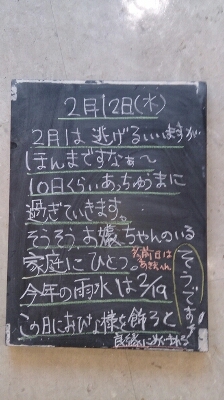 2月12日(水)
2月は逃げるいいますが
ほんまですなぁ〜
10日くらいあっちゅうまに
過ぎていきます。
そろそろ、お嬢ちゃんのいる
家庭にひとつ。
今年の雨水は2/19。
この日におひな様を飾ると
良縁にめぐまれる
そうです!